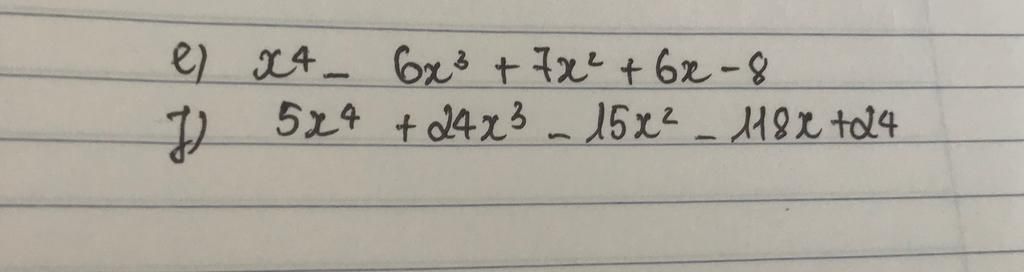 e) x⁴ - 6x³ + 7x² + 6x - 8
f) 5x⁴ + 24x³ - 15x² - 118x + 24